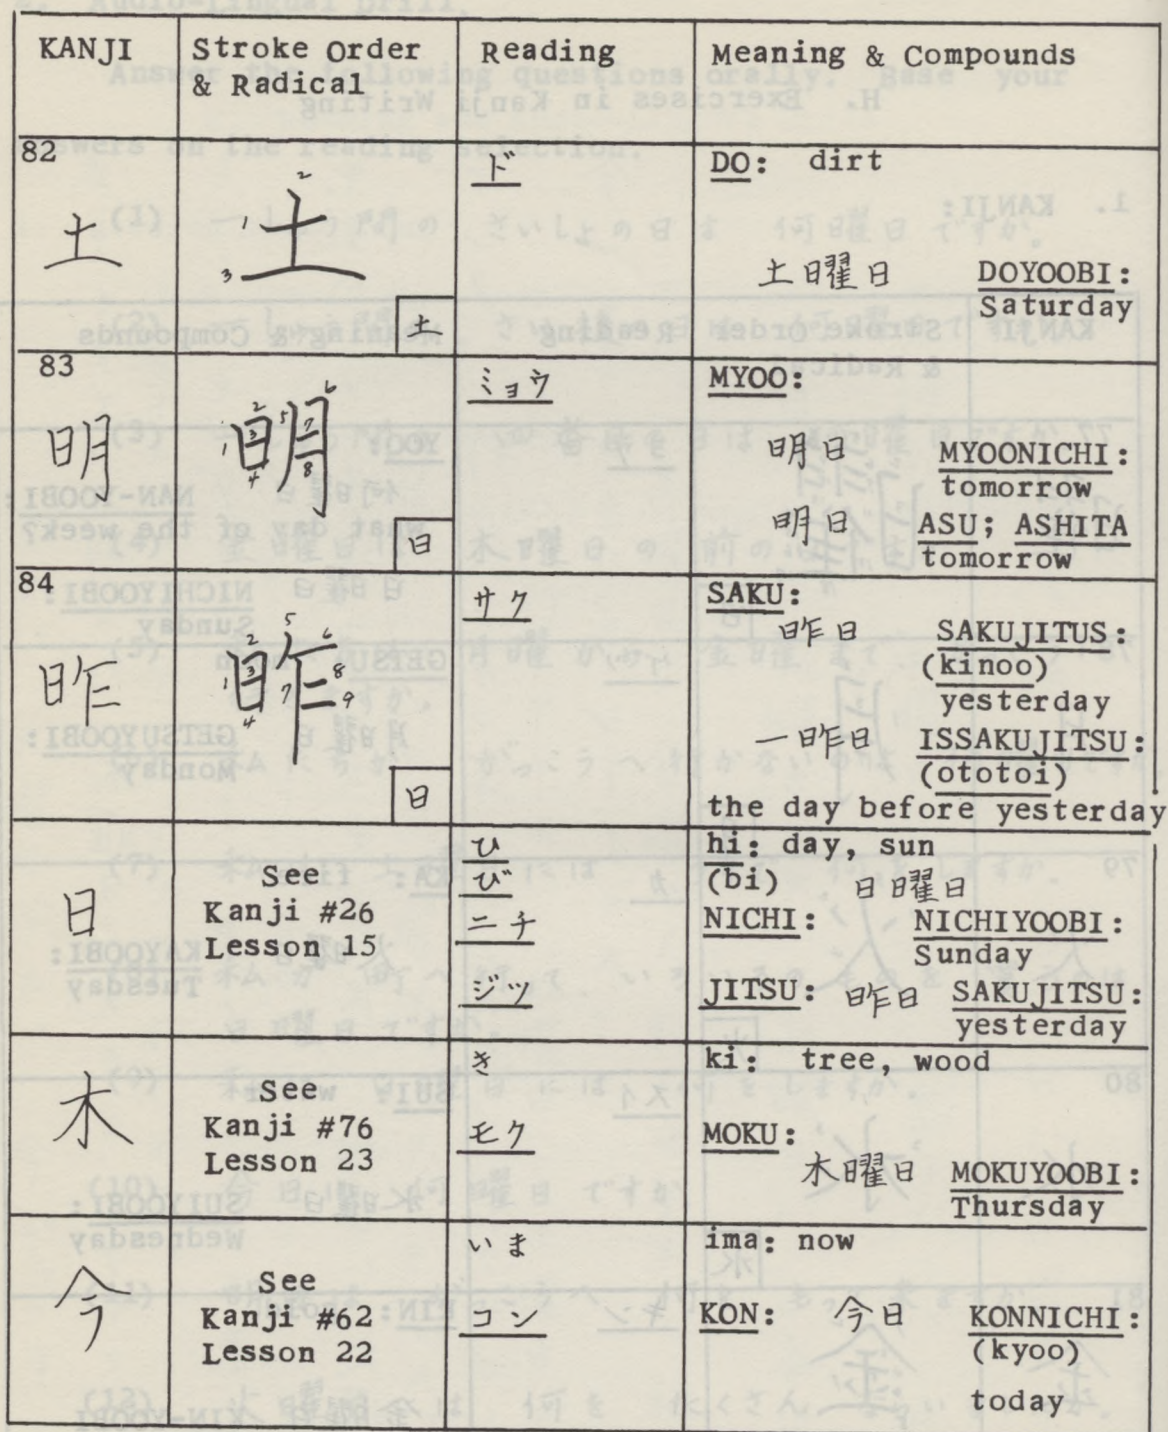 KANJI
Stroke Order
& Radical
Reading
Meaning & Compounds
82
土
1 2 3
土
土
ド
DO: dirt
土曜日 DOYOOBI:
Saturday
83
明
1 2 3 4 5 6 7 8
明
日
ミョウ
MYOO:
明日 MYOONICHI:
tomorrow
明日 ASU; ASHITA
tomorrow
84
昨
1 2 3 4 5 6 7 8 9
昨
日
サク
SAKU:
昨日 SAKUJITUS:
(kinoo)
yesterday
一昨日 ISSAKUJITSU:
(ototoi)
the day before yesterday
日
See
Kanji #26
Lesson 15
ひ
び
ニチ
ジツ
hi: day, sun
(bi) 日曜日
NICHI: NICHIYOOBI:
Sunday
JITSU: 昨日 SAKUJITSU:
yesterday
木
See
Kanji #76
Lesson 23
き
モク
ki: tree, wood
MOKU:
木曜日 MOKUYOOBI:
Thursday
今
See
Kanji #62
Lesson 22
いま
コン
ima: now
KON: 今日 KONNICHI:
(kyoo)
today